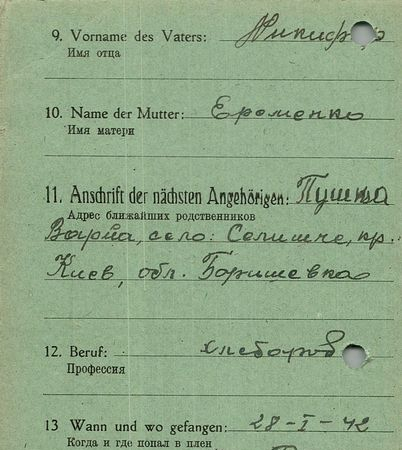 9. Vorname des Vaters: Никифор
Имя отца
10. Name der Mutter: Еременко
Имя матери
11. Anschrift der nächsten Angehörigen: Пушка
Адрес ближайших родственников
село: Селишче, кр.
Киев, обл. Баришевка
12. Beruf: хлебороб
Профессия
13 Wann und wo gefangen: 28-I-42
Когда и где попал в плен